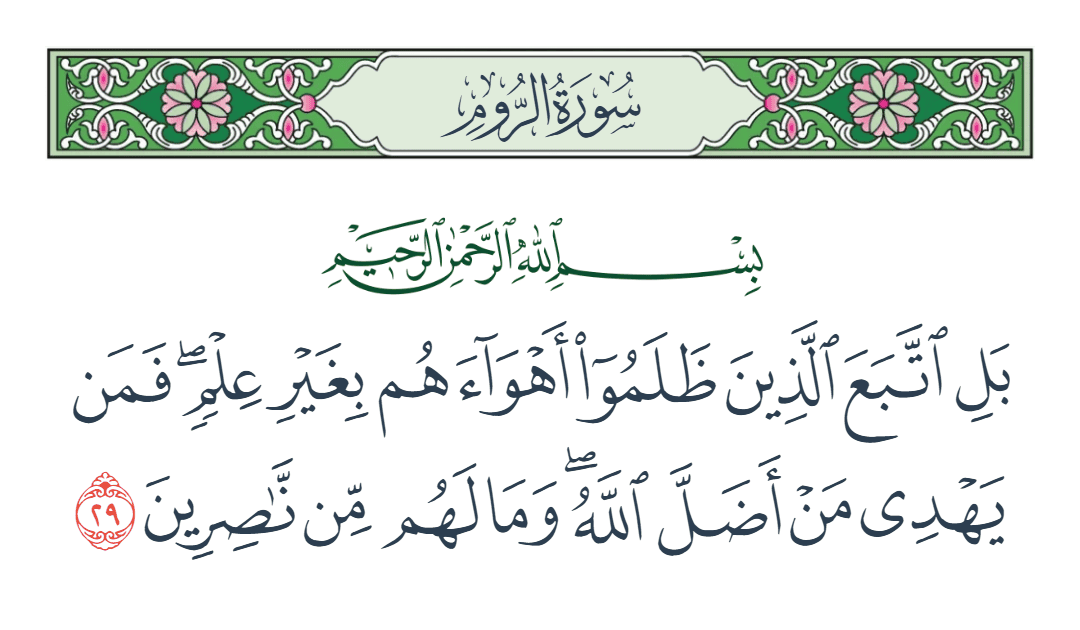 سُورَةُ الرُّومِ
بِسْمِ ٱللَّهِ ٱلرَّحْمَٰنِ ٱلرَّحِيمِ
بَلِ ٱتَّبَعَ ٱلَّذِينَ ظَلَمُوٓا۟ أَهْوَآءَهُم بِغَيْرِ عِلْمٍۢ ۖ فَمَن
يَهْدِى مَنْ أَضَلَّ ٱللَّهُ ۖ وَمَا لَهُم مِّن نَّٰصِرِينَ ٢٩